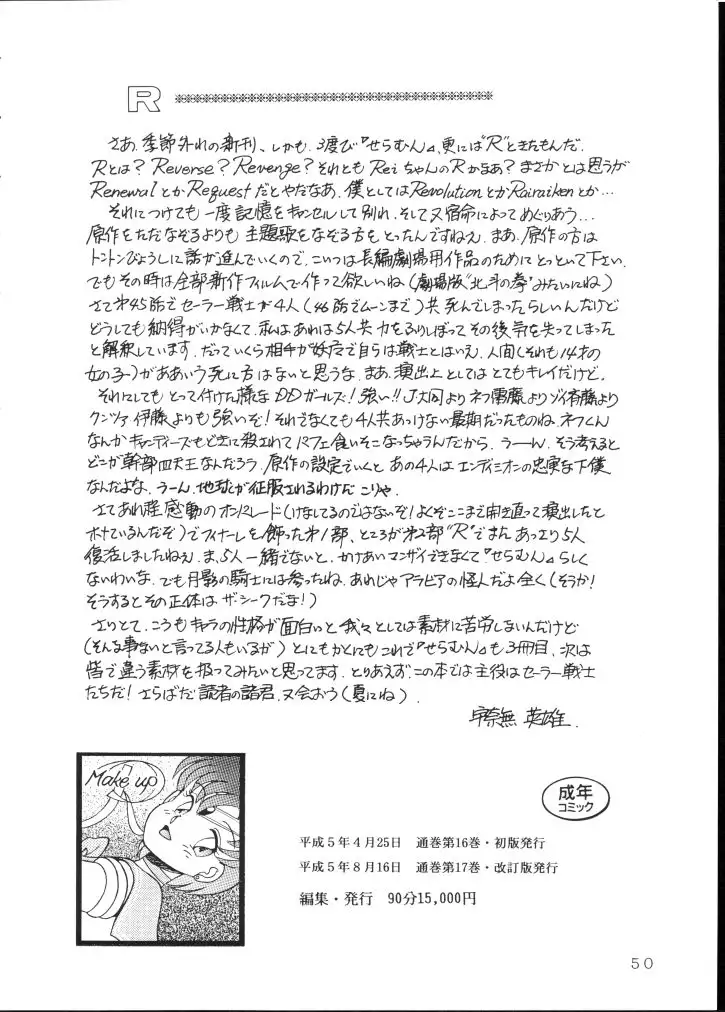 R
さあ、季節外れの新刊、しかも、3度び『せらむん』、更には"R"ときたもんだ。
Rとは? Reverse? Revenge? それとも ReiちゃんのRかなあ? まさかとは思うが
RenewalとかRequestだとやだなあ。僕としてはRevolutionとかRairaikenとか…
それにつけても一度記憶をキャンセルして別れ、そして又宿命によってめぐりあう…
原作をただなぞるよりも主題歌をなぞる方をとったんですねえ。まあ、原作の方は
トントンびょうしに話が進んでいくので、こいつは長編劇場用作品のためにとっといて下さい。
でもその時は全部新作フィルムで作って欲しいね(劇場版"北斗の拳"みたいにね)
さて第45話でセーラー戦士が4人(46話でムーンまで)共死んでしまったらしいんだけど
どうしても納得がいかなくて、私はあれは5人共力をふりしぼってその後気を失ってしまった
と解釈しています。だっていくら相手が妖魔で自らは戦士とはいえ、人間(それも14才の
女の子)がああいう死に方はないと思うな。まあ、演出上としてはとてもキレイだけど。
それにしてもとって付けた様なDDガールズ!強い!!J大同よりネフ雷藤よりゾイ斉藤より
クンツァ伊藤よりも強いぞ!それでなくても4人共あっけない最期だったものね。ネフくん
なんかキャンディーズもどきに殺されてパフェ食いそこなっちゃうんだから。うーん、そう考えると
どこが幹部四天王なんだろう。原作の設定でいくとあの4人はエンディミオンの忠実な下僕
なんだよな。うーん、地球が征服されるわけだこりゃ。
さてあれ程感動のオンパレード(けなしてるのではないぞ!よくぞここまで開き直って演出したと
ホメているんだぞ)でフィナーレを飾った第1部、ところが第2部"R"でまたあっさり5人
復活しましたねえ。ま、5人一緒でないと、かけあいマンザイできなくて『せらむん』らしく
ないわいな。でも月影の騎士には参ったね。あれじゃアラビアの怪人だよ全く(そうか!
そうするとその正体はザ・シークだな!)
さりとて、こうもキャラの性格が面白いと我々としては素材に苦労しないんだけど
(そんな事ないと言ってる人もいるが)とにもかくにもこれで『せらむん』も3冊目、次は
皆で違う素材を扱ってみたいと思ってます。とりあえず、この本では主役はセーラー戦士
たちだ!さらばだ読者の諸君、又会おう(夏にね)
宇奈無 英雄
Make up
成年
コミック
平成5年4月25日 通巻第16巻・初版発行
平成5年8月16日 通巻第17巻・改訂版発行
編集・発行 90分15,000円
50